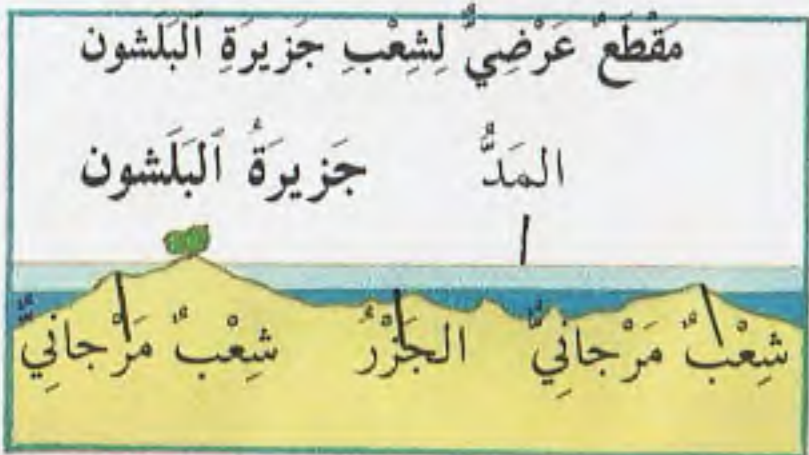 مَقْطَعٌ عَرْضِيٌّ لِشِعْبِ جَزيرَةِ ٱلبَلَشون
المَدُّ جَزيرَةُ ٱلبَلَشون
شِعْبٌ مَرْجانِيٌّ الجَزْرُ شِعْبٌ مَرْجانِيٌّ